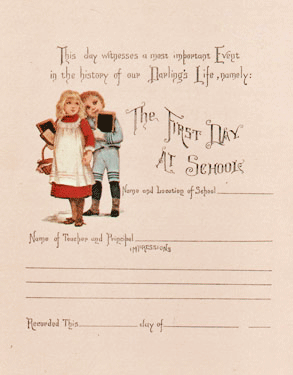 This day witnesses a most important Event
in the history of our Darling's Life, namely:
The First Day
At School
Name and Location of School
Name of Teacher and Principal
Impressions
Recorded This day of